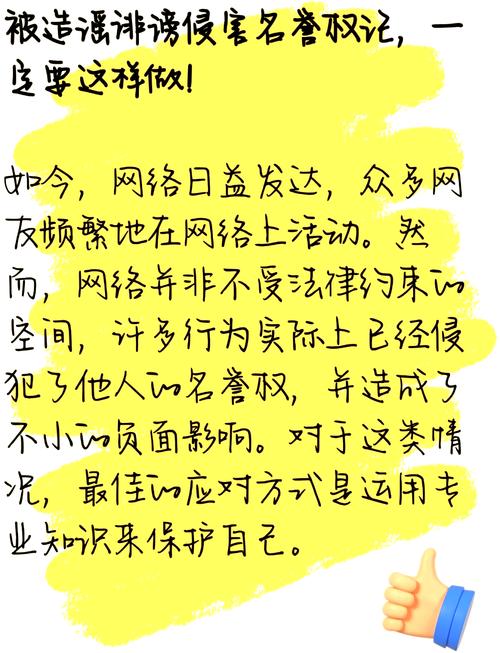 被造谣诽谤侵害名誉权记，一
定要这样做！
如今，网络日益发达，众多网
友频繁地在网络上活动。然
而，网络并非不受法律约束的
空间，许多行为实际上已经侵
犯了他人的名誉权，并造成了
不小的负面影响。对于这类情
况，最佳的应对方式是运用专
业知识来保护自己。